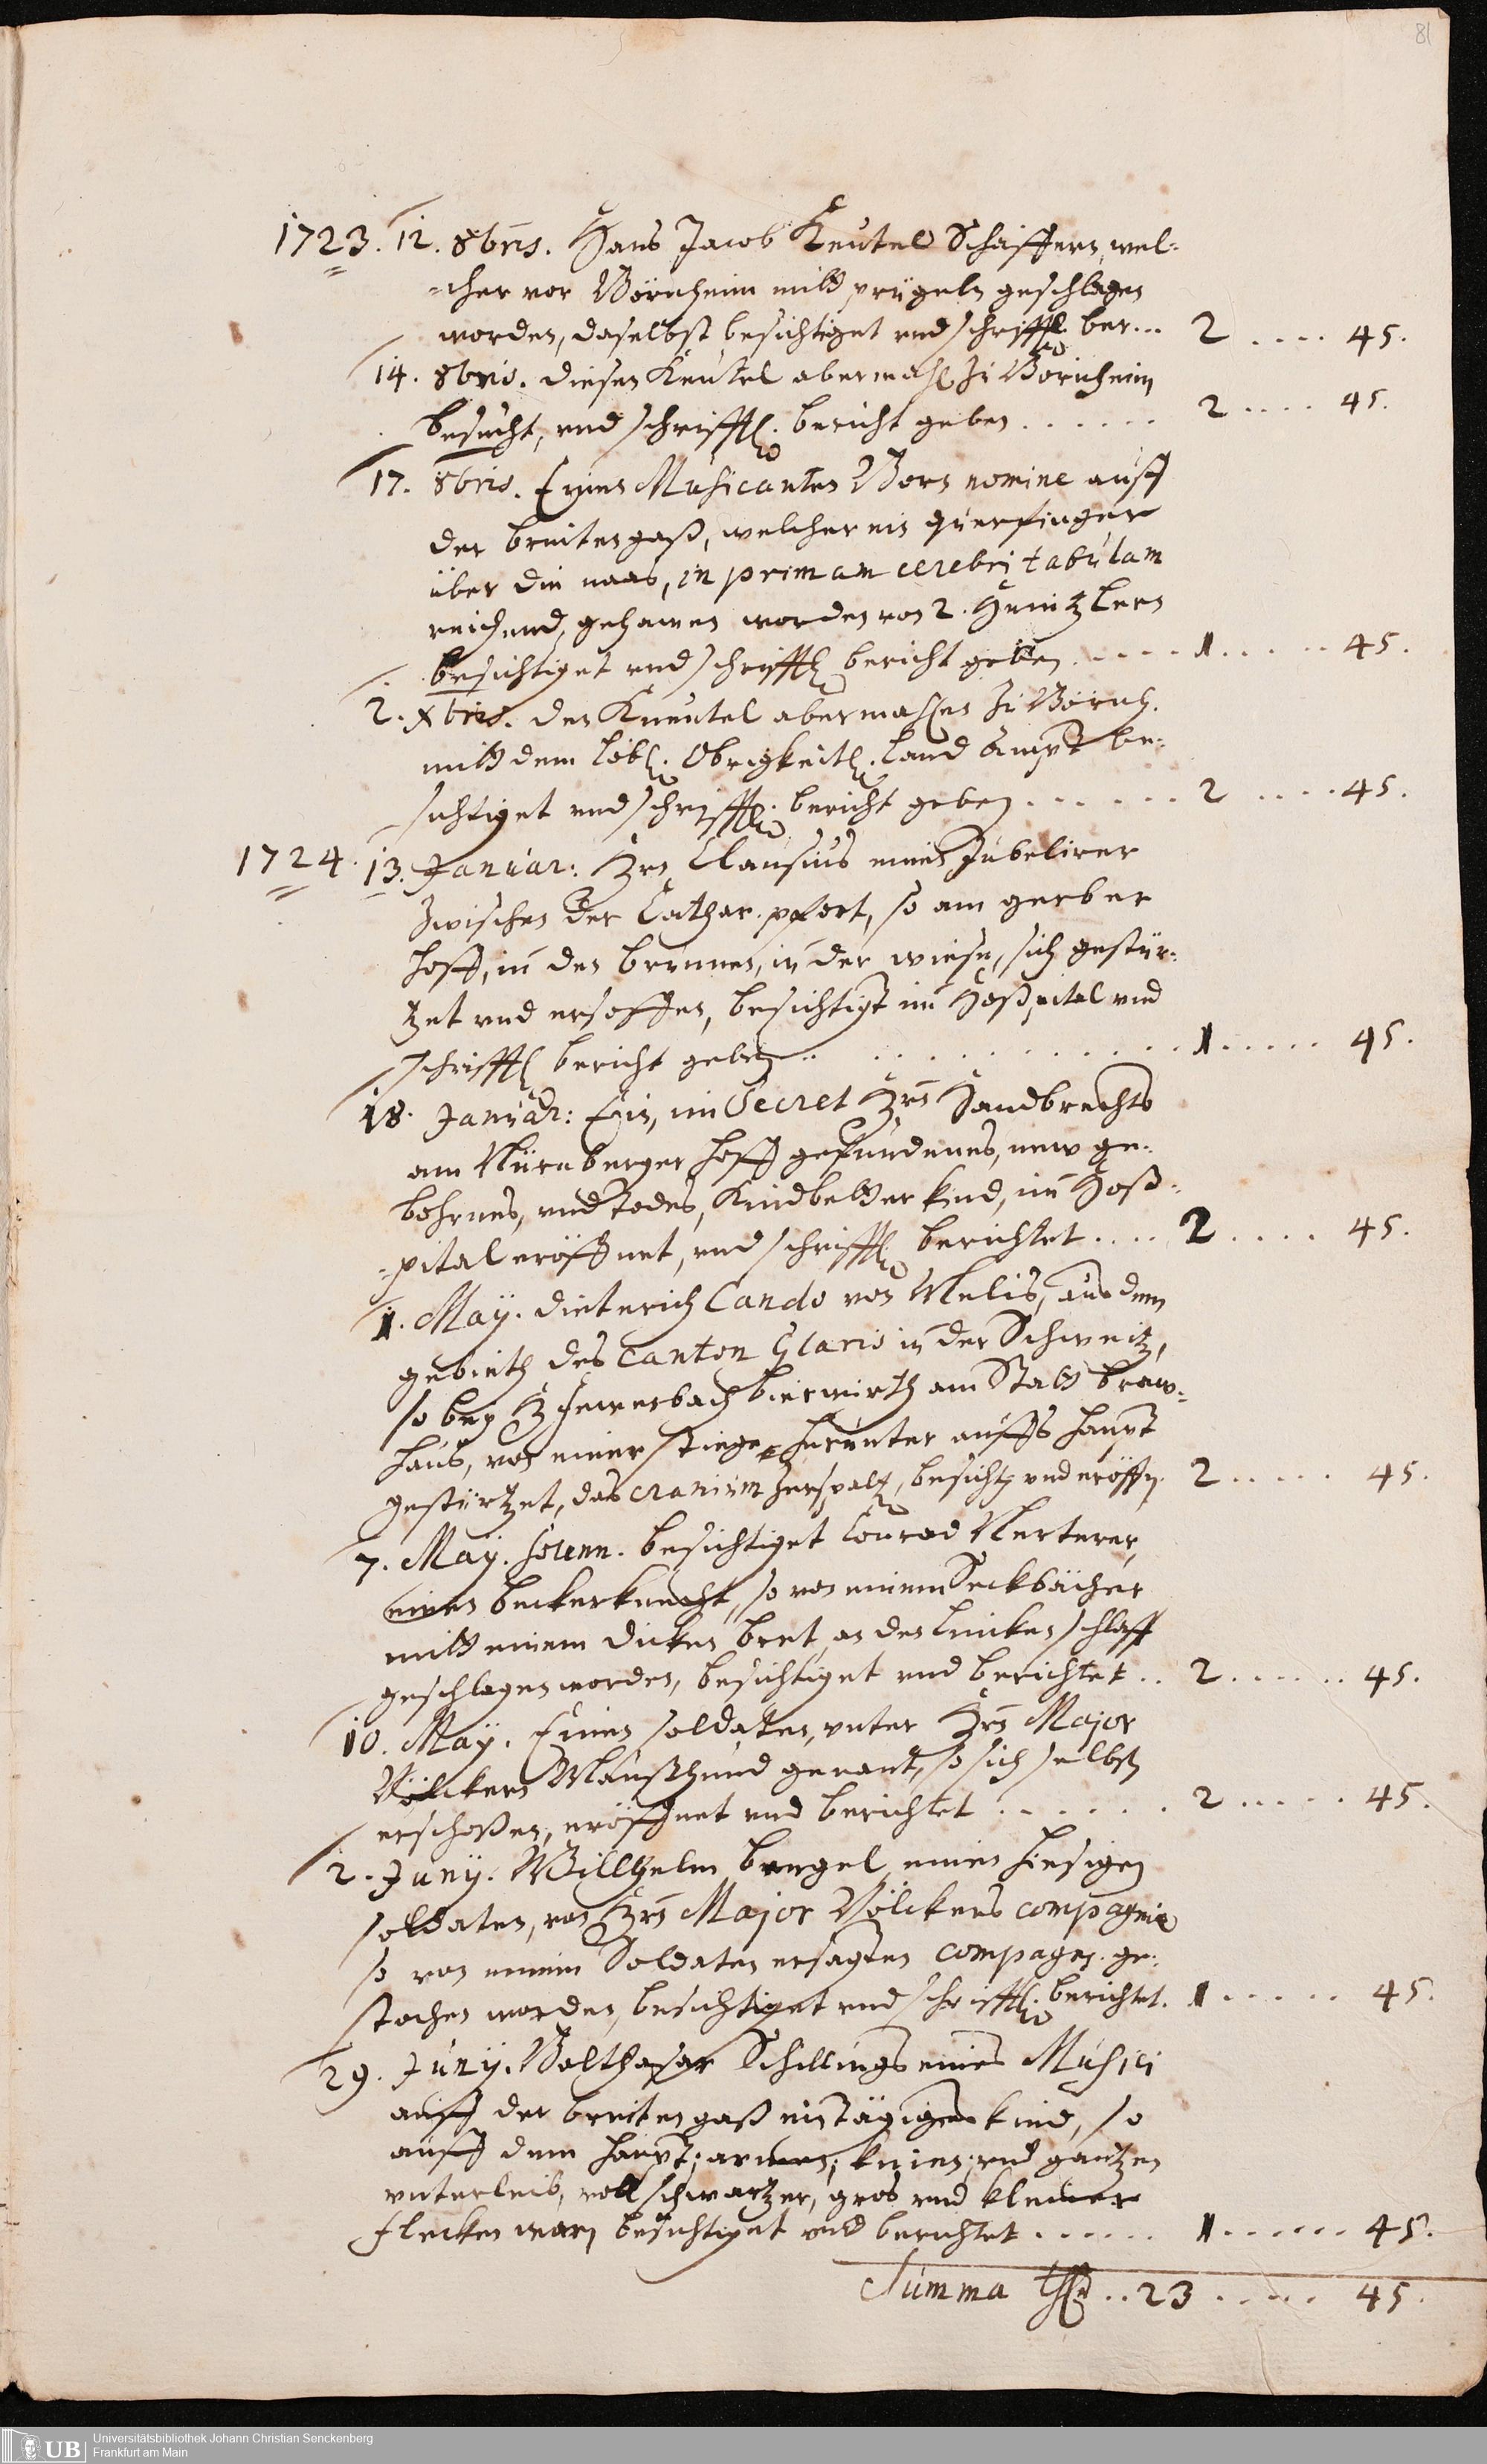 81
1723. 12. 8bris. Hans Jacob Keutel Schäffern, wel-
-cher vor Bornheim mitt prügeln geschlagen
worden, daselbst besichtiget und schrifftl. ber... 2 .... 45.
14. 8bris. diesen Keutel abermahl zu Bornheim
besucht, und schrifftl. bericht geben ...... 2 .... 45.
17. 8bris. Einen Musicanten Born nomine auff
der breiten gaß, welcher ein querfinger
über die naas, in primam cerebri tabulam
reichend, gehawen worden von 2. Heintzlern
besichtiget und schrifftl. bericht geben ..... 1 ..... 45.
2. Xbris. den Kneutel abermahlen zu Bornh.
mitt dem löbl. Obrigkeitl. Land ampt be-
sichtiget und schrifftl. bericht geben ...... 2 .... 45.
1724. 13. Januar: Hrn Clausius eines Jubelirer
zwischen der Cathar. pfort, so am gerber
hoff, in den brunnen, in der wiese, sich gestür-
tzet und ersoffen, besichtigt im Hospital und
schrifftl bericht geben .. ........... 1 ..... 45.
18. Januar: Ein, im Secret Hrn Handbrechts
am Nürnberger hoff gefundenes, new ge-
bohrnes, und todes, Kindbetter kind, im Hos-
-pital eröffnet, und schrifftl. berichtet .... 2 .... 45.
1. May. Dieterich Cando von Melis, aus dem
gebieth des Canton Glaris in der Schweitz,
so bey H Fewerbach bierwirth am Statt braw-
haus, von einer stiege herunter auffs haupt
gestürtzet, das cranium zerspalt, besicht. und eröffn. 2 ..... 45.
7. May. Solenn. besichtiget Conrad Merterer,
einen beckerknecht, so von einem Seckbächer
mitt einem dicken bret an den lincken schlaff
geschlagen worden, besichtiget und berichtet .. 2 ...... 45.
10. May. Einen soldaten, unter Hrn Major
Völckern Maußhund genant, so sich selbst
erschoßen, eröffnet und berichtet ...... 2 ..... 45.
2. Juny. Willhelm Bengel einen hiesigen
soldaten, von Hrn Major Völckers compagnie
so von einem Soldaten ersagten compagn. ge-
stochen worden, besichtiget und schrifftl. berichtet. 1 ..... 45.
29. Juny. Balthasar Schillings eines Musici
auff der breiten gaß eintägiges kind, so
auff dem haupt, armen, knien, und gantzen
unterleib, voll schwartzer, gros und kleiner
flecken war, besichtiget und berichtet ...... 1 ...... 45.
Summa .. 23 ..... 45.
UB Universitätsbibliothek Johann Christian Senckenberg
Frankfurt am Main